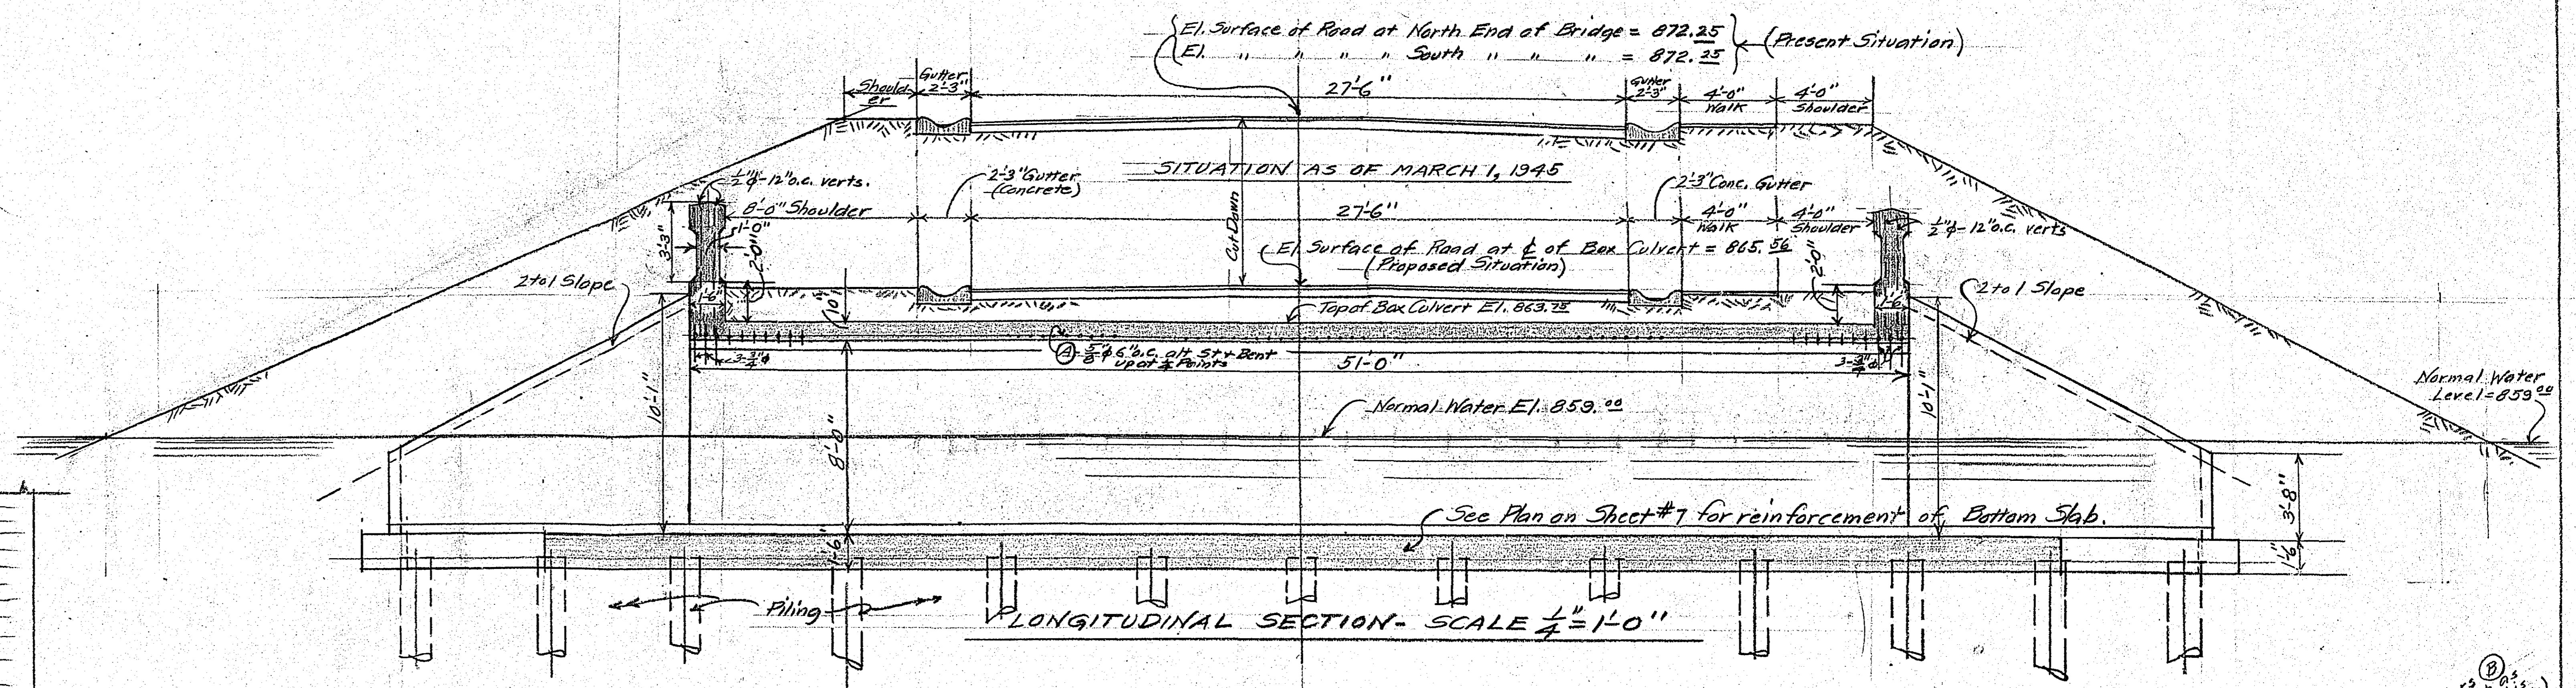 El. Surface of Road at North End of Bridge = 872.25
El. " " " " South " " " = 872.25
(Present Situation)
Shoulder
Gutter
2'-3"
27'-6"
Gutter
2'-3"
4'-0"
Walk
4'-0"
Shoulder
SITUATION AS OF MARCH 1, 1945
1/2"ϕ-12"o.c. verts.
8'-0" Shoulder
2'-3" Gutter
(Concrete)
Cut Down
27'-6"
2'-3" Conc. Gutter
4'-0"
Walk
4'-0"
Shoulder
1/2"ϕ-12"o.c. verts
3'-3"
1'-0"
2'-0"
El. Surface of Road at ℄ of Box Culvert = 865.56
(Proposed Situation)
2'-0"
2 to 1 Slope
1'-6"
10"
Top of Box Culvert El. 863.75
1'-6
2 to 1 Slope
3-3/4"ϕ
Ⓐ 5/8"ϕ 6"o.c. alt. St + Bent
up at 1/4 Points
51'-0"
3-3/4"ϕ
10'-1"
8'-0"
Normal Water El. 859.00
10'-1"
Normal Water
Level=859.00
See Plan on Sheet #7 for reinforcement of Bottom Slab.
3'-8"
1'-6"
1'-6"
Piling
LONGITUDINAL SECTION- SCALE 1/4"=1'-0"
Ⓑ